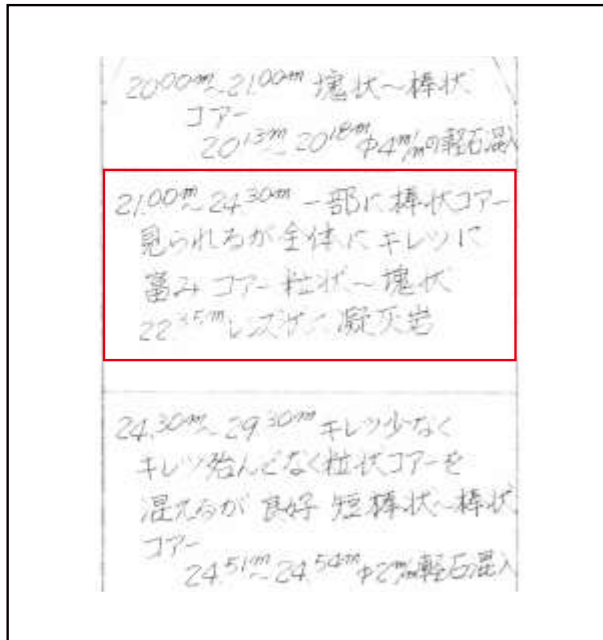 20.00m~21.00m 塊状~棒状
コアー
20.13m~20.18m φ4m/mの軽石混入
21.00m~24.30m 一部に棒状コアー
見られるが全体にキレツに
富みコアー粒状~塊状
レンズ状に凝灰岩
24.30m~29.30m キレツ少なく
キレツ殆んどなく粒状コアーを
混えるが良好 短棒状~棒状
コアー
24.51m~24.54m φ2m/m軽石混入